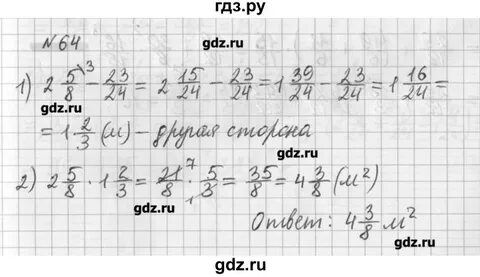 гдз.ру
№64
gdz.ru gdz.ru
1) 2 5/8 ³ - 23/24 = 2 15/24 - 23/24 = 1 39/24 - 23/24 = 1 16/24 =
gdz.ru gdz.ru
= 1 2/3 (м) - другая сторона
gdz.ru
2) 2 5/8 · 1 2/3 = 21/8 ⁷ · 5/3 ₁ = 35/8 = 4 3/8 (м²)
gdz.ru gdz.ru
Ответ: 4 3/8 м²
gdz.ru
gdz.ru